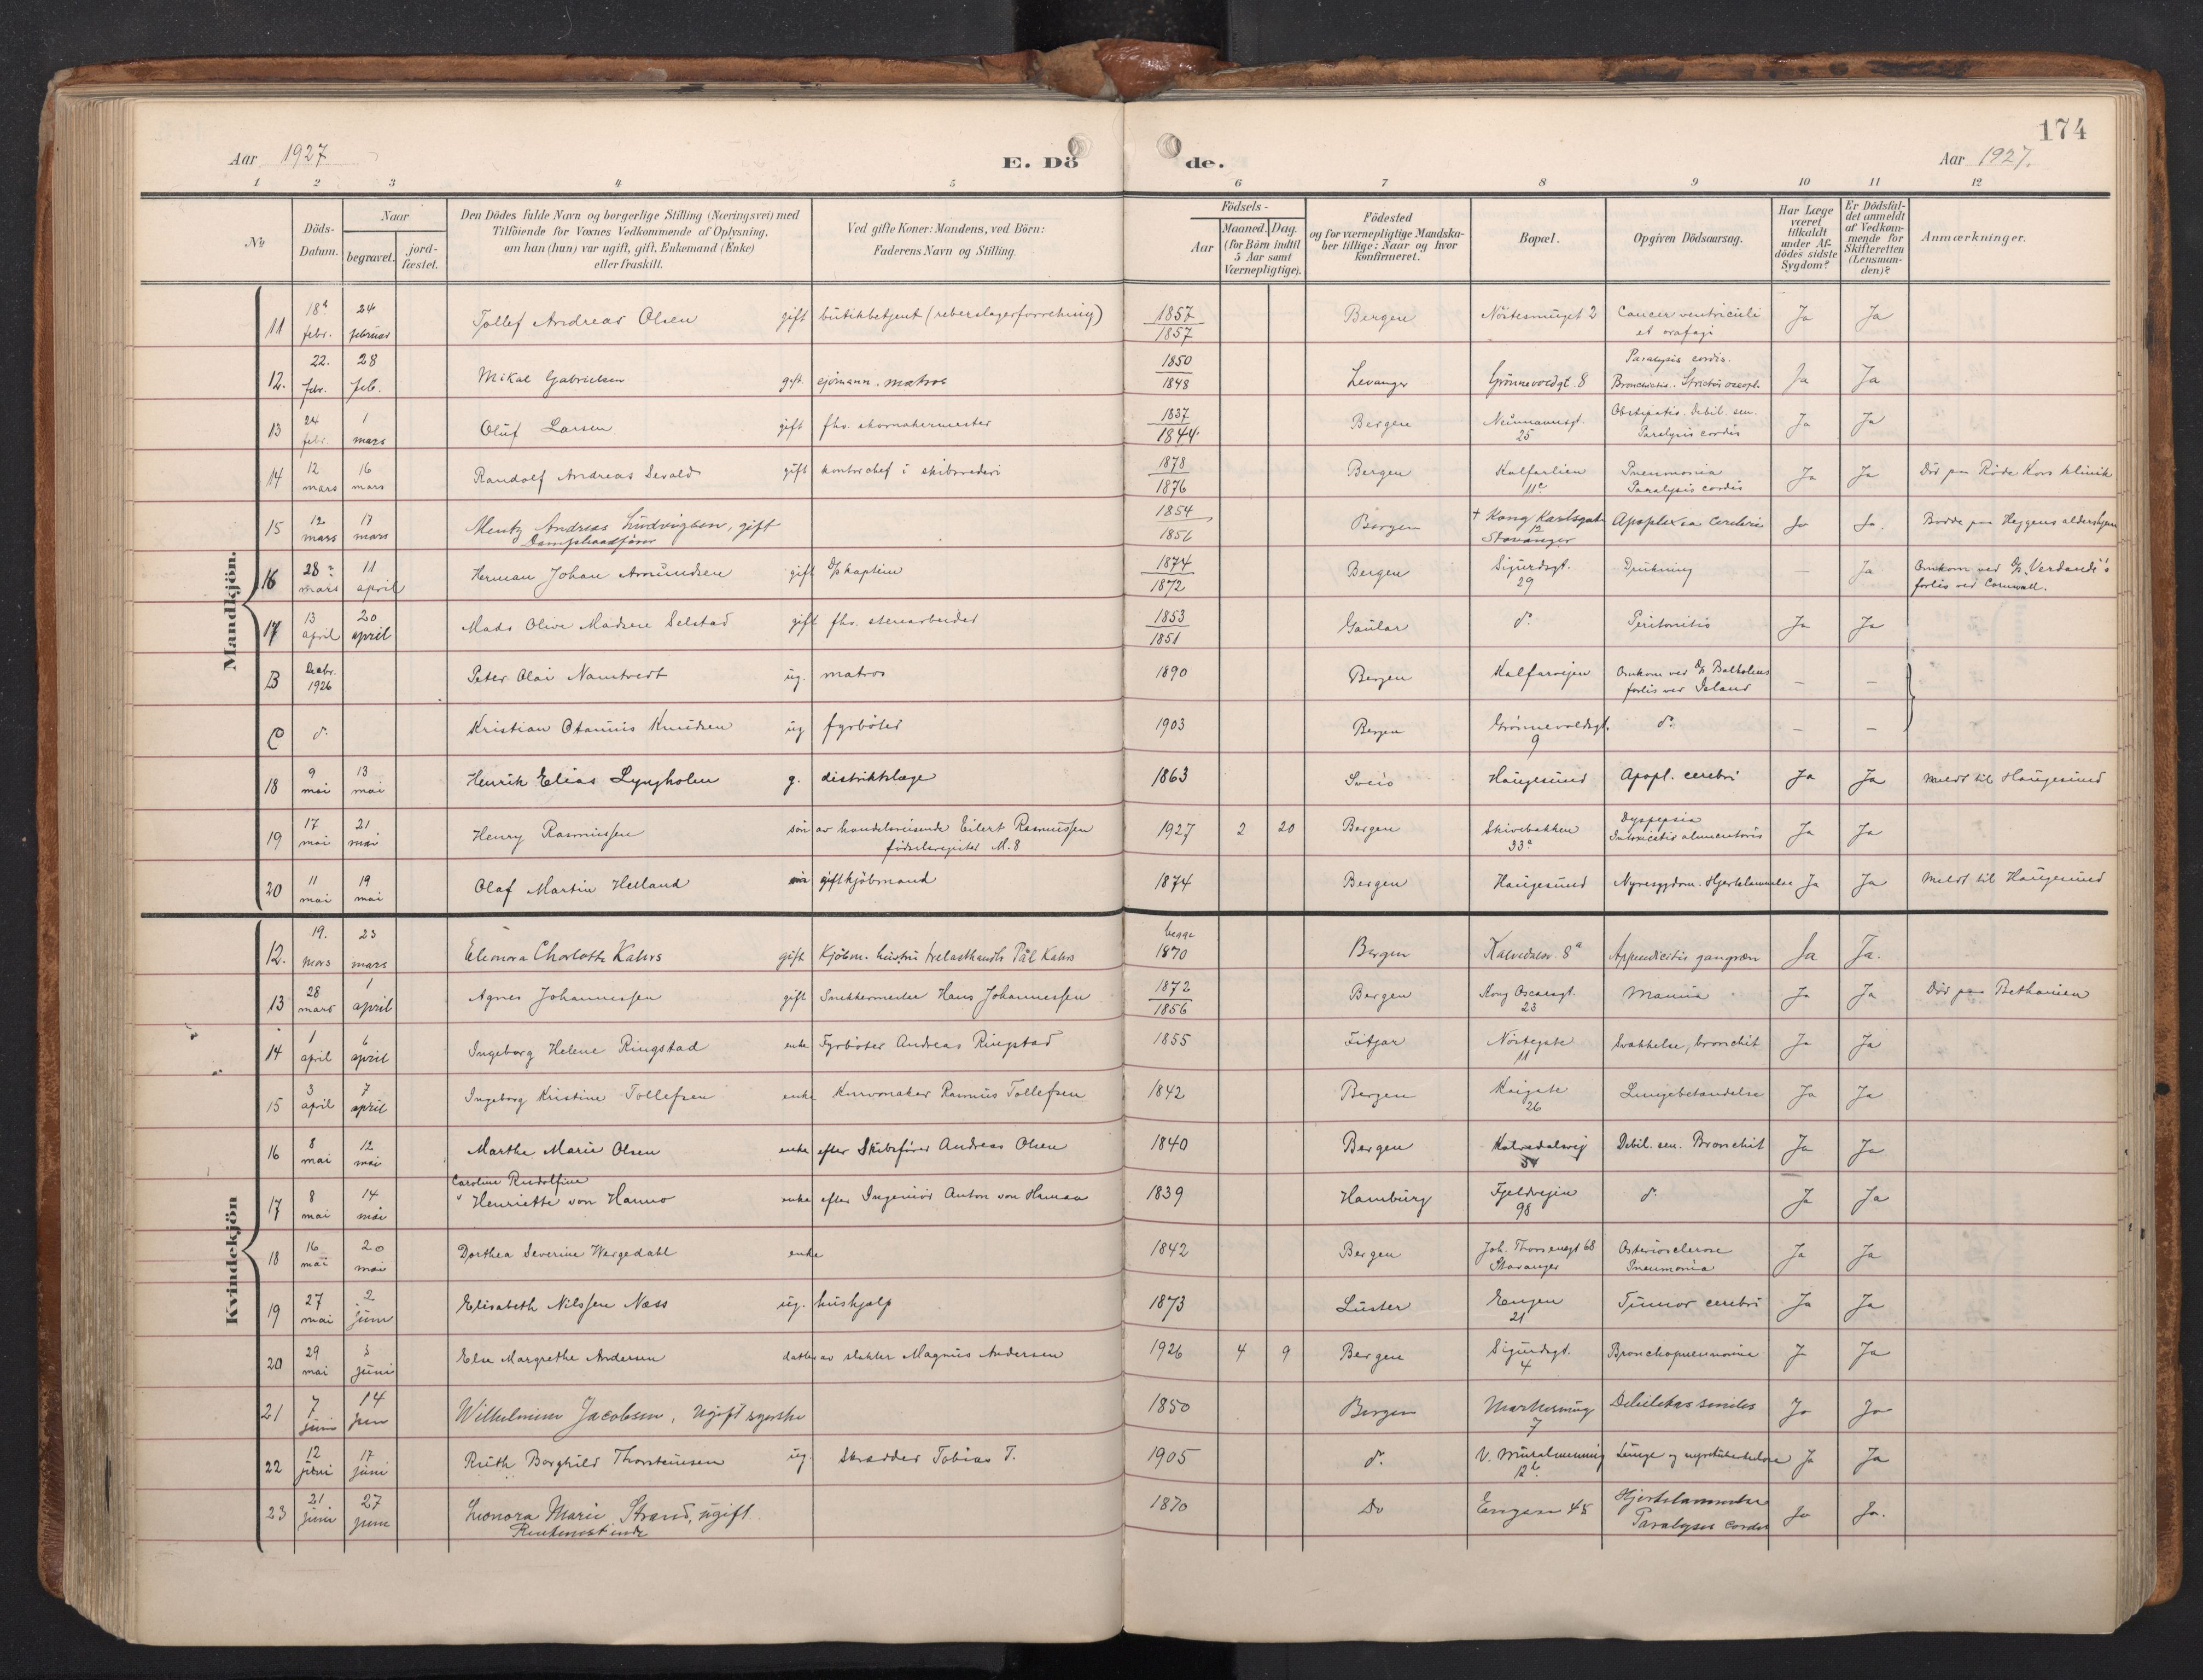 174
Aar 1927
E. Dö de.
Aar 1927.
1 2 3 4 5 6 7 8 9 10 11 12
No
Döds-Datum.
Naar
begravet.
jord-fæstet.
Den Dödes fulde Navn og borgerlige Stilling (Næringsvei) med
Tilföiende for Voxnes Vedkommende af Oplysning,
om han (hun) var ugift, gift, Enkemand (Enke)
eller fraskilt.
Ved gifte Koner: Mandens, ved Börn:
Faderens Navn og Stilling.
Födsels-
Aar
Maaned. Dag.
(for Börn indtil
5 Aar samt
Værnepligtige).
Födested
og for værnepligtige Mandska-
ber tillige: Naar og hvor
Konfirmeret.
Bopæl.
Opgiven Dödsaarsag.
Har Læge
været
tilkaldt
under Af-
dödes sidste
Sygdom?
Er Dödsfal-
det anmeldt
af Vedkom-
mende for
Skifteretten
(Lensman-
den)?
Anmærkninger.
Mandkjön.
11 18 febr. 24 februar Tollef Andreas Olsen gift butikbetjent (reberslagerforretning) 1857 1857 Bergen Nöstesmuget 2 Cancer ventriculi et Ja Ja
12. 22. febr. 28 feb. Mikal Gabrielsen gift sjömann. matros 1850 1848 Levanger Grönnevoldgt. 8 Paralysis cordis. Ja Ja
13 24 febr. 1 mars Oluf Larsen gift fhv. skomakermester 1837 1844. Bergen Neumannsgt. 25 Obstipatio. Debil. sen. Paralysis cordis Ja Ja
14 12 mars 16 mars Randolf Andreas Sevald gift kontorchef i skibsrederi 1878 1876 Bergen Kalfarlien 11c Pneumonia Paralysis cordis Ja Ja Död paa Röde Kors klinik
15 12 mars 17 mars Mentz Andreas Ludvigsen, gift 1854 1856 Bergen + Kong Karlsgate 12 Stavanger Apoplexia cerebri Ja Ja. paa aldershjem
16 28 mars 11 april Herman Johan Amundsen gift D/s kaptein 1874 1872 Bergen Sigurdsgt. 29 Drukning — Ja Omkom ved D/s "Verdandi"s forlis ved Cornwall.
17 13 april 20 april Mads Olive Madsen Selstad gift fhv. stenarbeider 1853 1851 Gaular do Peritonitis Ja Ja
B Decbr. 1926 Peter Olai Namtvedt ug. matros 1890 Bergen Kalfarveien Omkom ved D/s Balholms forlis ved Island — —
C do Kristian Otanius Knudsen ug fyrböter 1903 Bergen Grönnevoldsgt. 9 do — —
18 9 mai 13 mai Henrik Elias Lyngholm g. distriktslæge 1863 Sveio Haugesund Apopl. cerebri Ja Ja Meldt til Haugesund
19 17 mai 21 mai Henry Rasmussen sön av handelsreisende Eilert Rasmussen födselsregister M. 8 1927 2 20 Bergen Skivebakken 33a Dyspepsia Intoxicatio alimentaris Ja Ja
20 11 mai 19 mai Olaf Martin Helland gift kjöbmand 1874 Bergen Haugesund Nyresygdom. Hjertelammelse Ja Ja Meldt til Haugesund
Kvindekjön
12. 19. mars 23 mars Eleonora Charlotte Kahrs gift Kjöbm. hustru Pål Kahrs begge 1870 Bergen Kalvedalsv. 8a Appendicitis gangræn Ja Ja.
13 28 mars 1 april Agnes Johannessen gift Snekkermester Hans Johannessen 1872 1856 Bergen Kong Oscarsgt. 23 Mania Ja Ja Död paa Bethanien
14 1 april 6 april Ingeborg Helene Ringstad enke Fyrböter Andreas Ringstad 1855 Fitjar Nöstegate 11 Svakhelse, bronchit Ja Ja
15 3 april 7 april Ingeborg Kristine Tollefsen enke Kurvmaker Rasmus Tollefsen 1842 Bergen Kaigate 26 Lungebetændelse Ja Ja
16 8 mai 12 mai Marthe Marie Olsen enke efter Skibsförer Andreas Olsen 1840 Bergen Kalvedalsvei Debil. sen. Bronchit Ja Ja
17 8 mai 14 mai Caroline Rudolfine Henriette von Hanno enke efter Ingeniör Anton von Hanno 1839 Hamburg Fjeldveien 98 do Ja Ja
18 16 mai 20 mai Dorthea Severine Wergedahl enke 1842 Bergen Joh. Thorsensgt 68 Stavanger Pneumonia Ja Ja
19 27 mai 2 juni Elisabeth Nilssen Næss ug. hushjælp 1873 Luster Engen 21 Tumor cerebri Ja Ja
20 29 mai 3 juni Else Margrethe Andersen datter av slakter Magnus Andersen 1926 4 9 Bergen Sigurdsgt. 4 Bronchopneumonia Ja Ja
21 7 juni 14 juni Wilhelmine Jacobsen, ugift syerske 1850 Bergen 7 Debilitas senilis Ja Ja
22 12 juni 17 juni Ruth Borghild Thorsteinsen ug. Skrædder Tobias T. 1905 do V. Muralmenning 12b Lunge og nyretuberkulose Ja Ja
23 21 juni 27 juni Leonora Marie Strand, ugift 1870 Do Engen 45 Hjertelammelse Paralysis cordis Ja Ja.